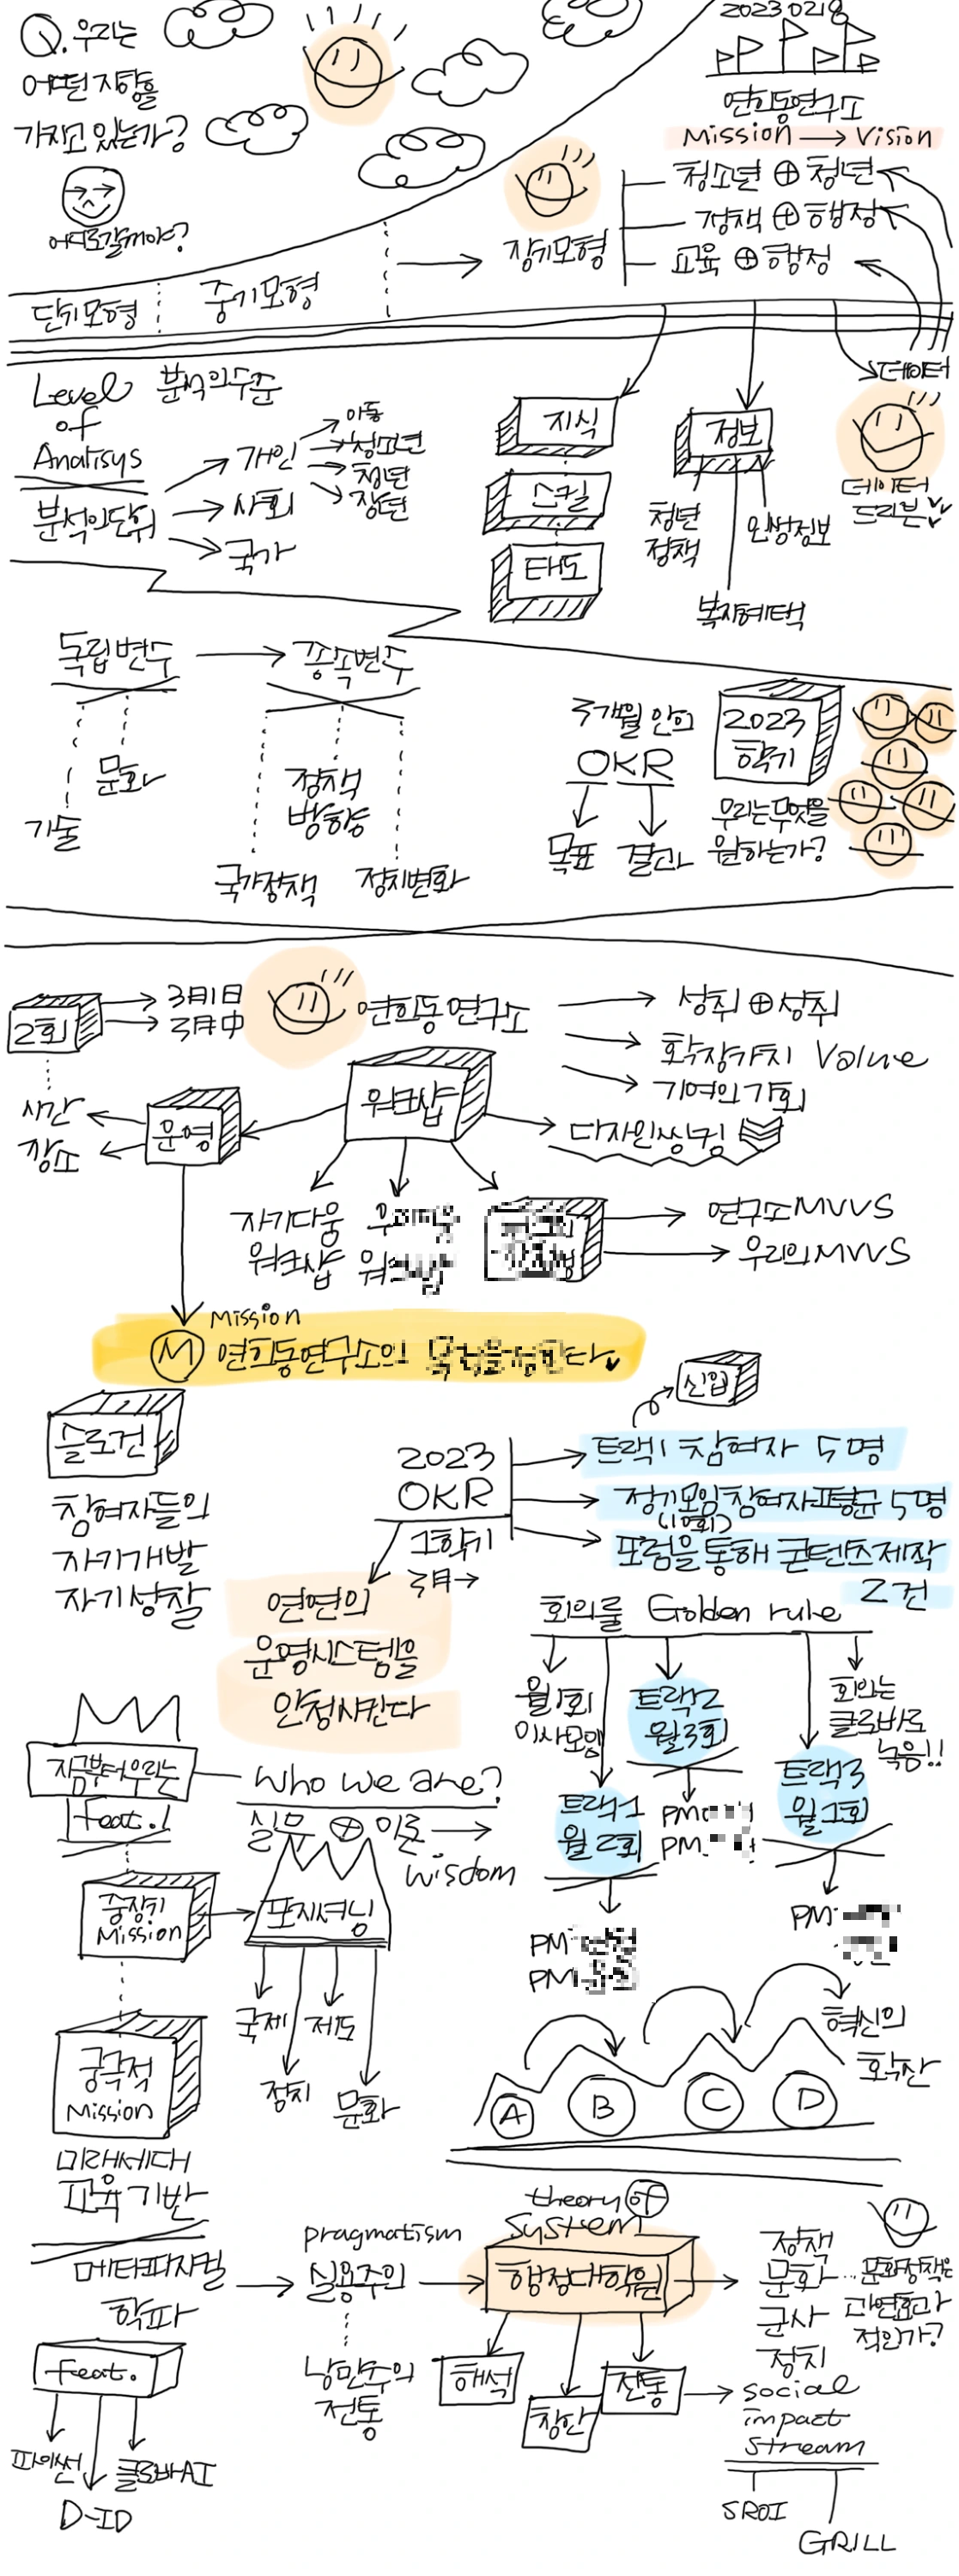 Q. 우리는
어떤 지향을
가지고 있는가?
어디로갈꺼에요?
2023 0218
연희동연구소
Mission → Vision
청소년 ⊕ 청년
정책 ⊕ 행정
교육 ⊕ 행정
장기모형
단기모형
중기모형
데이터
데이터
드리븐
Level 분석의수준
of
Analisys
분석의단위
개인
사회
국가
아동
청소년
청년
장년
지식
스킬
태도
정보
청년
정책
인생정보
복지혜택
독립변수 → 종속변수
문화
기술
정책
방향
국가정책
정치변화
3개월 안의
OKR
목표 결과
2023
학기
우리는무엇을
원하는가?
2회
3月1日
3月中
시간
장소
운영
연희동연구소
성취 ⊕ 성취
확장가치 Value
기여의 기회
워크샵
디자인씽킹
자기다움
워크샵
연구소MVVS
우리의MVVS
Mission
M 연희동연구소의
슬로건
참여자들의
자기개발
자기성찰
신입
2023
OKR
1학기
3月→
트랙1 참여자 5명
정기모임참여자평균 5명
(10회)
포럼을통해 콘텐츠제작
2건
연연의
운영시스템을
안정시킨다
회의룰 Golden rule
월1회
이사모임
트랙2
월3회
회의는
클로바로
녹음!!
트랙1
월2회
트랙3
월1회
PM
PM
PM
PM
PM
지금부터우리는
Feat.!
Who we are?
실무 ⊕ 이론 →
wisdom
중장기
Mission
포지셔닝
국제
제도
정치
문화
궁극적
Mission
미래세대
교육기반
A
B
C
D
혁신의
확산
메타피지컬
학파
pragmatism
실용주의
낭만주의
전통
theory of
System
행정대학원
해석
창안
전통
정책
문화
군사
정치
문화정책은
과연효과
적인가?
social
impact
stream
SROI
GRILL
feat.
파이썬
클로바AI
D-ID